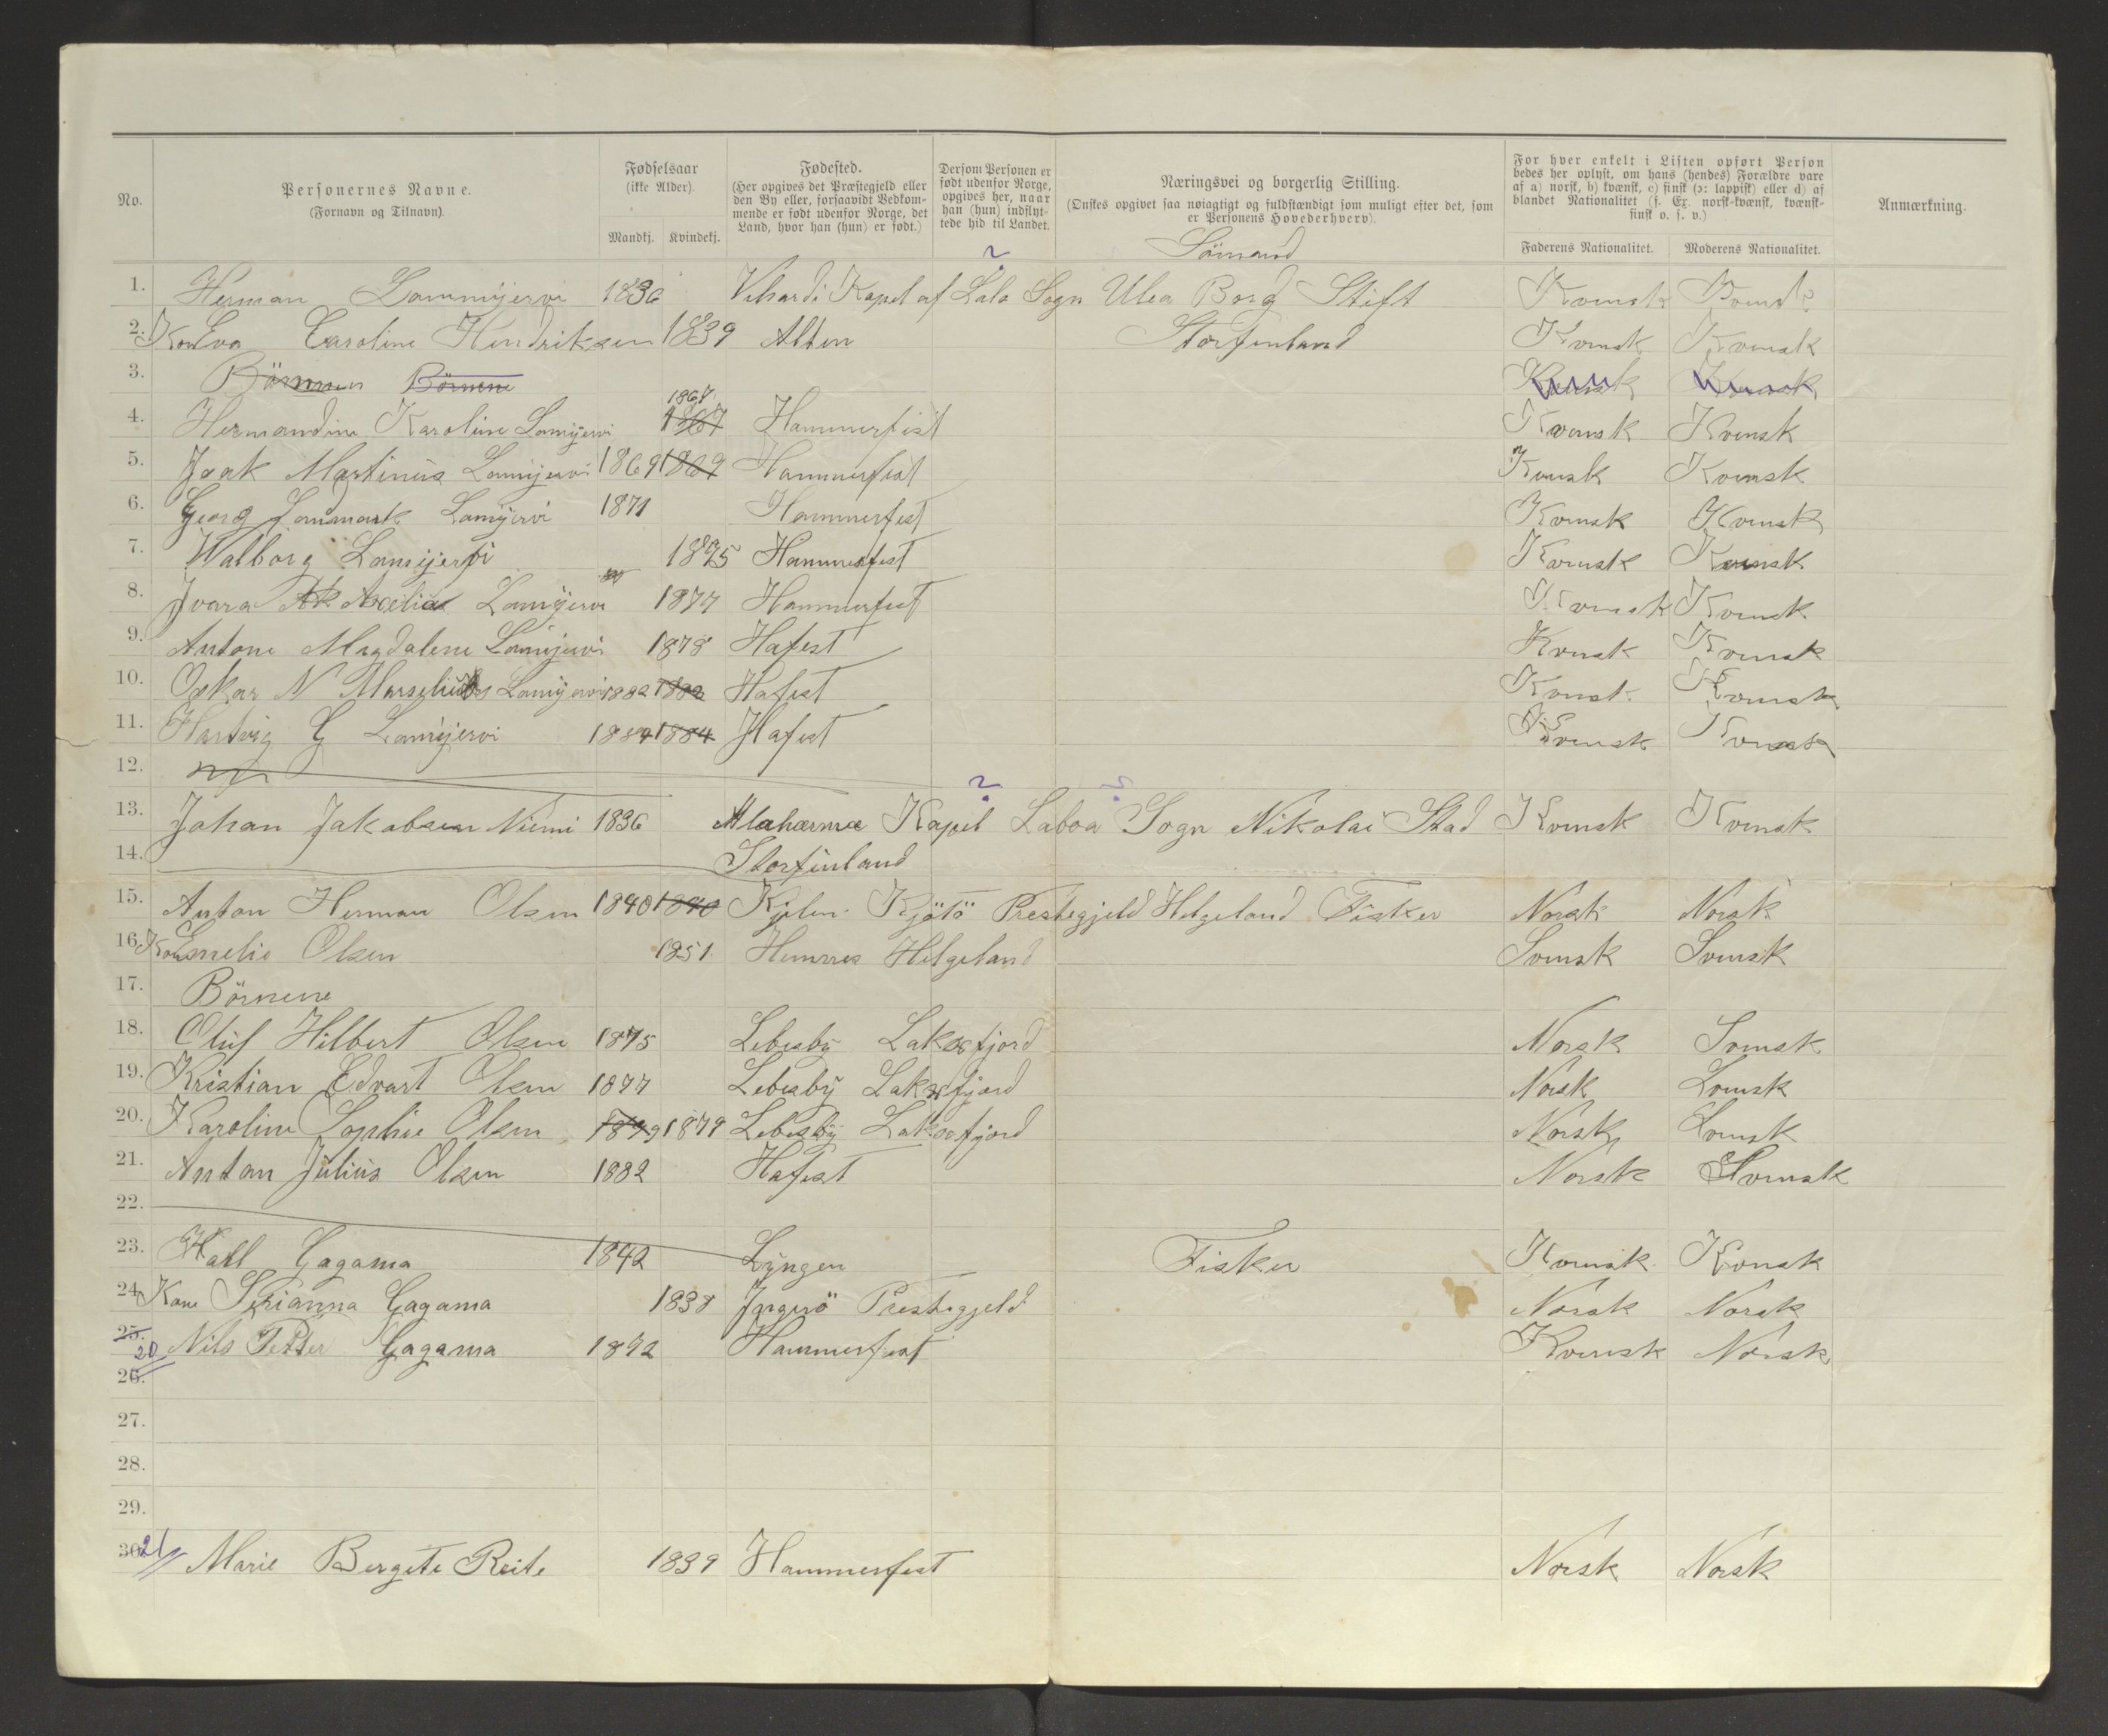 No.
Personernes Navne.
(Fornavn og Tilnavn).
Fødselsaar
(ikke Alder).
Mandkj. Kvindekj.
Fødested.
(Her opgives det Præstegjeld eller
den By eller, forsaavidt Vedkom-
mende er født udenfor Norge, det
Land, hvor han (hun) er født.)
Dersom Personen er
født udenfor Norge,
opgives her, naar
han (hun) indflyt-
tede hid til Landet.
Næringsvei og borgerlig Stilling.
(Ønskes opgivet saa nøiagtigt og fuldstændigt som muligt efter det, som
er Personens Hovederhverv).
For hver enkelt i Listen opført Person
bedes her oplyst, om hans (hendes) Forældre vare
af a) norsk, b) kvænsk, c) finsk (ɔ: lappisk) eller d) af
blandet Nationalitet (f. Ex. norsk-kvænsk, kvænsk-
finsk o. s. v.)
Faderens Nationalitet. Moderens Nationalitet.
Anmærkning.
Sömand
?
1. Herman Lammijervi 1836 Kapel af Lalo Sogn Ulea Borg Stift Kvensk Kvensk
2. Kone Eva Caroline Hendriksen 1839 Alten Storfinland Kvensk Kvensk
3. Börnene Börnene Kvensk Kvensk
1867
4. Hermandine Karoline Lamijervi 1867 Hammerfest Kvensk Kvensk
5. Isak Martinus Lamijervi 1869 1869 Hammerfest Kvensk Kvensk
6. Georg Lamijervi 1871 Hammerfest Kvensk Kvensk
7. Walborg Lamijervi 1875 Hammerfest Kvensk Kvensk
8. Ivara Axelia Lamijervi 1877 Hammerfest Kvensk Kvensk
9. Antone Magdalene Lamijervi 1878 Hafest Kvensk Kvensk
10. Oskar N Marselius Lamijervi 1882 1882 Hafest Kvensk Kvensk
11. Hartvig G Lamijervi 1884 1884 Hafest Kvensk Kvensk
12.
? ?
13. Johan Jakobsen Niemi 1836 Alaharma Kapel Laboa Sogn Nikolai Stad Kvensk Kvensk
14. Storfinland
15. Anton Herman Olsen 1840 1840 Kjötö Prestegjeld Helgeland Fisker Norsk Norsk
16. Kone Emelie Olsen 1851 Hemnes Helgeland Svensk Svensk
17. Börnene
18. Oluf Hilbert Olsen 1875 Lebesby Laksefjord Norsk Svensk
19. Kristian Edvart Olsen 1877 Lebesby Laksefjord Norsk Svensk
20. Karoline Sophie Olsen 1879 1879 Lebesby Laksefjord Norsk Svensk
21. Anton Julius Olsen 1882 Hafest Norsk Svensk
22.
23. Karl Gagama 1842 Lyngen Fisker Kvensk Kvensk
24. Kone Serianna Gagama 1838 Ingerö Prestegjeld Norsk Norsk
25. 20 Nils Petter Gagama 1872 Hammerfest Kvensk Norsk
26.
27.
28.
29.
30. 21 Marie Bergete Reite 1839 Hammerfest Norsk Norsk